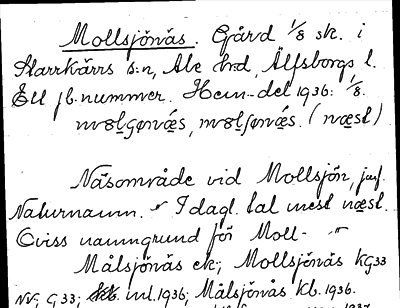 Mollsjönäs. Gård 1/8 sk. i
Starrkärrs s:n, Ale hrd, Älfsborgs l.
Ett jb.nummer. Hem-del 1936: 1/8.
(næst)
Näsområde vid Mollsjön, jmf.
Naturnamn. I dagl. tal mest næst.
Oviss namngrund för Moll- "
Målsjönäs ek; Mollsjönäs kg33
nv. g33; inl. 1936; Målsjönäs kb. 1936.